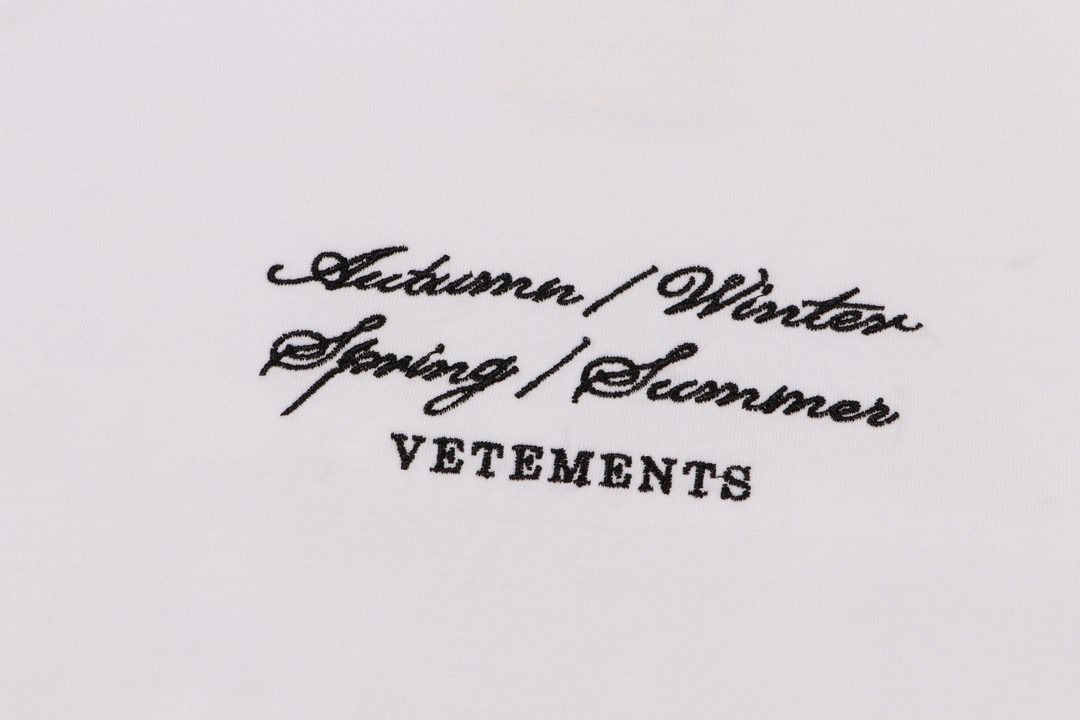 Autumn / Winter
Spring / Summer
VETEMENTS